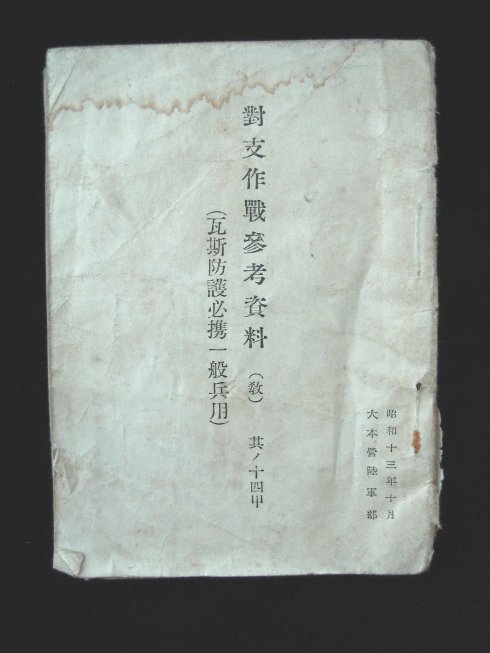 昭和十三年十月
大本營陸軍部
對支作戰參考資料(教) 其ノ十四甲
(瓦斯防護必携一般兵用)